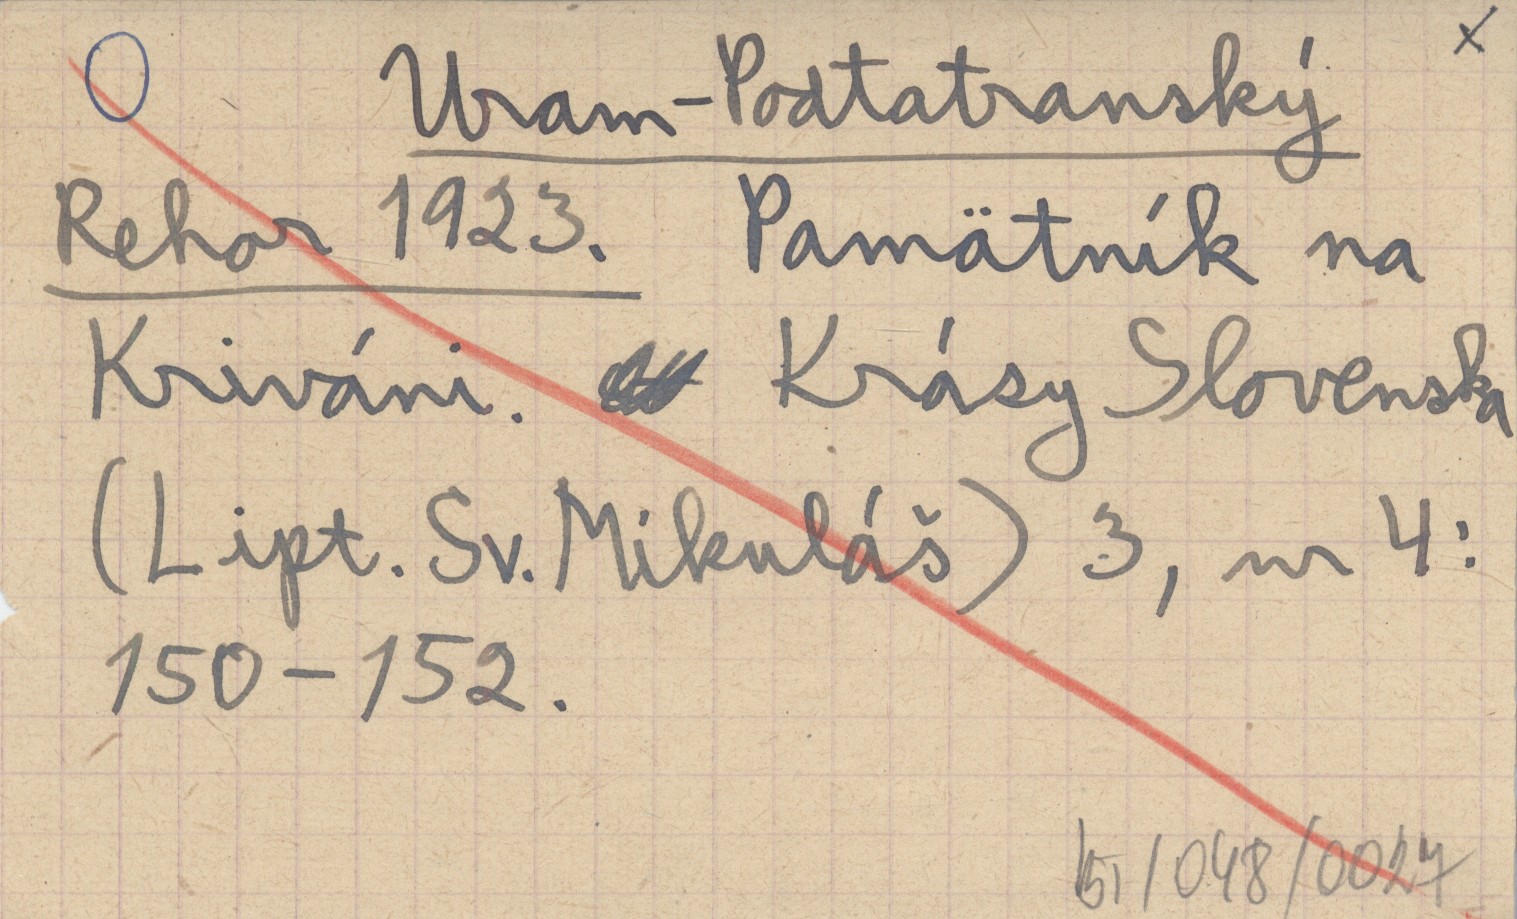 x
Uram-Podtatranský
Rehor 1923. Pamätník na
Kriváni. Krásy Slovenska
(Lipt. Sv. Mikuláš) 3, nr 4:
150-152.
/048/0027